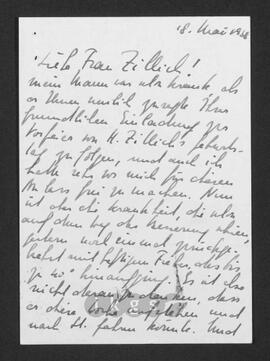 18. Mai 1968
Liebe Frau Zillich!
mein Mann war also krank, als
er Ihnen neulich zusagte Ihrer
freundlichen Einladung zur
Vorfeier von H. Zillichs Geburts-
tag zu folgen, und auch ich
hatte mich für diesen
Anlass frei zu machen. Nun
ist aber die Krankheit, die
auf dem Weg der Besserung schien,
gestern noch einmal zurückge-
kehrt mit heftigem Fieber, das bis
zu 40° hinaufging. Es ist also
nicht daran zu denken, dass
er diese Woche aufstehen und
nach St. fahren könnte. Und